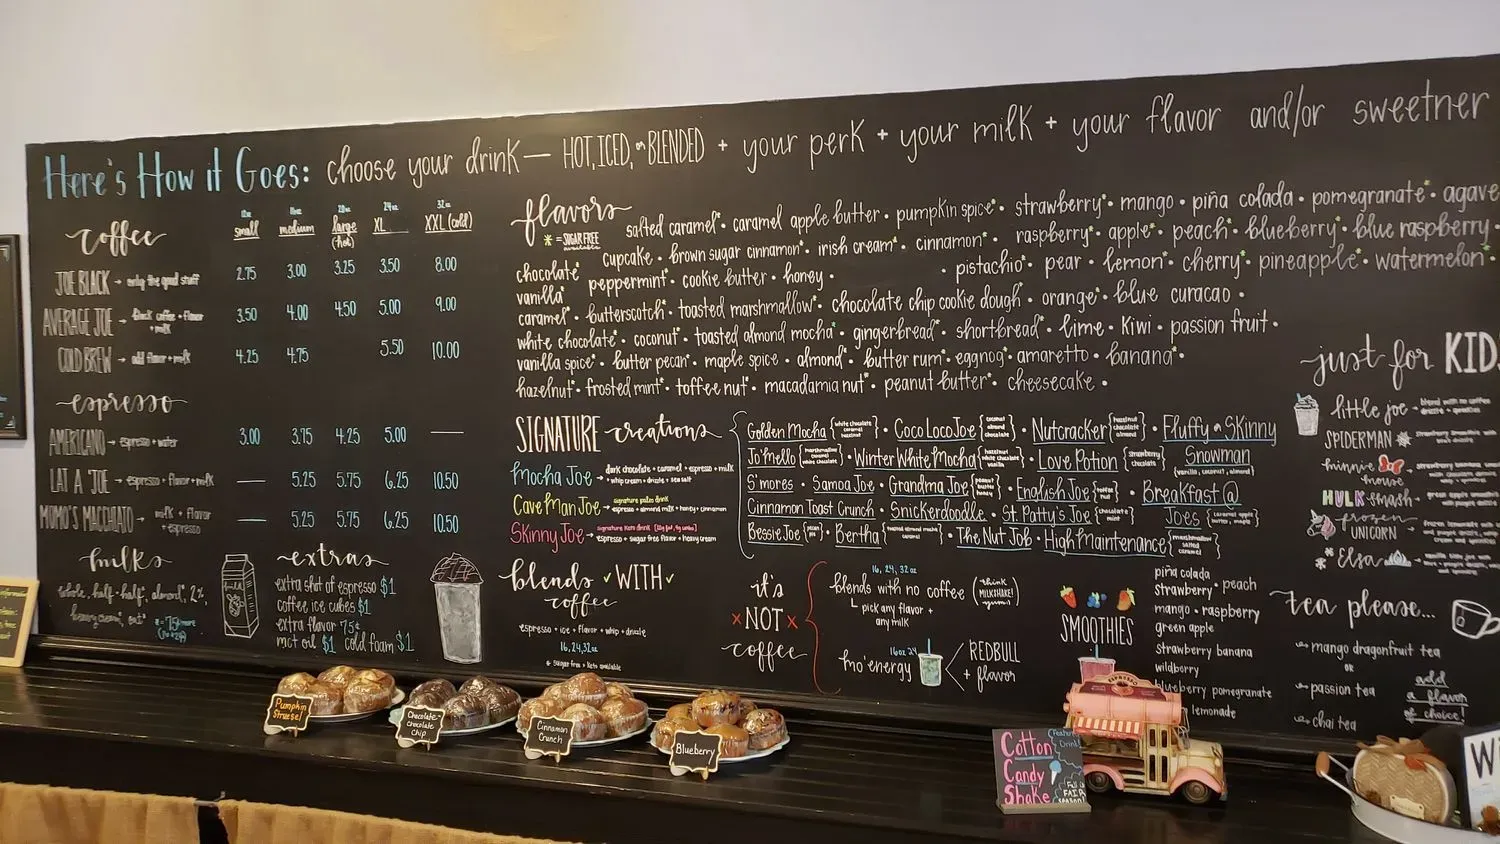 Here's How it Goes: choose your drink — HOT, ICED, or BLENDED + your perk + your milk + your flavor and/or sweetner
coffee
12oz small 16oz medium 20oz large (hot) 24oz XL 32oz XXL (cold)
JOE BLACK → only the good stuff 2.75 3.00 3.25 3.50 8.00
AVERAGE JOE → black coffee + flavor + milk 3.50 4.00 4.50 5.00 9.00
COLD BREW → add flavor + milk 4.25 4.75 5.50 10.00
espresso
AMERICANO → espresso + water 3.00 3.75 4.25 5.00 —
LAT A 'JOE → espresso + flavor + milk — 5.25 5.75 6.25 10.50
MOMO'S MACCHIATO → milk + flavor + espresso — 5.25 5.75 6.25 10.50
milks
whole, half-half*, almond*, 2%,
heavy cream*, oat*
extras
extra shot of espresso $1
coffee ice cubes $1
extra flavor 75¢
mct oil $1 cold foam $1
flavors
* = SUGAR FREE available
salted caramel* • caramel apple butter • pumpkin spice* • strawberry* • mango • piña colada • pomegranate* • agave
cupcake • brown sugar cinnamon* • irish cream* • cinnamon* • raspberry* • apple* • peach* • blueberry* • blue raspberry •
chocolate* peppermint* • cookie butter • honey • • pistachio* • pear • lemon* • cherry* • pineapple* • watermelon* •
vanilla*
caramel* • butterscotch • toasted marshmallow* • chocolate chip cookie dough* • orange* • blue curacao •
white chocolate* • coconut* • toasted almond mocha* • gingerbread* • shortbread* • lime • Kiwi • passion fruit •
vanilla spice* • butter pecan* • maple spice • almond* • butter rum* • eggnog* • amaretto • banana* •
hazelnut* • frosted mint* • toffee nut* • macadamia nut* • peanut butter* • cheesecake •
SIGNATURE creations
Mocha Joe → dark chocolate + caramel + espresso + milk
+ whip cream + drizzle + sea salt
CaveMan Joe → signature paleo drink
espresso + almond milk + honey + cinnamon
Skinny Joe →
espresso + sugar free flavor + heavy cream
Golden Mocha {white chocolate caramel hazelnut} • Coco Loco Joe {coconut almond chocolate} • Nutcracker {hazelnut chocolate almond} • Fluffy or Skinny
Jo'mello {marshmallow caramel white chocolate} • Winter White Mocha • Love Potion {strawberry chocolate} Snowman
(vanilla, coconut, almond)
S'mores • Samoa Joe • Grandma Joe {peanut butter honey} • English Joe • Breakfast @
Cinnamon Toast Crunch • Snickerdoodle • St. Patty's Joe {chocolate mint} Joe's
Bessie Joe • Bertha {toasted almond mocha} • The Nut Job • High Maintenance {marshmallow salted caramel}
blends ✓WITH✓
coffee
espresso + ice + flavor + whip + drizzle
16, 24, 32oz
* sugar free + Keto available
it's
×NOT×
coffee
16, 24, 32 oz
blends with no coffee (think MILKSHAKE! yum!)
pick any flavor +
any milk
16oz 24
mo'energy
REDBULL
+ flavor
SMOOTHIES
piña colada
strawberry • peach
mango • raspberry
green apple
strawberry banana
wildberry
blueberry pomegranate
lemonade
just for KIDS
little joe → blend with no coffee + drizzle + sprinkles
SPIDERMAN
minnie mouse
HULK smash →
frozen UNICORN
Elsa
tea please...
mango dragonfruit tea
or
passion tea
chai tea
add
a flavor
of choice!
Pumpkin
Streusel
Chocolate-
chocolate
chip
Cinnamon
Crunch
Blueberry
Cotton
Candy
Shake
Drink!
FAIR
season!
ESPRESSO